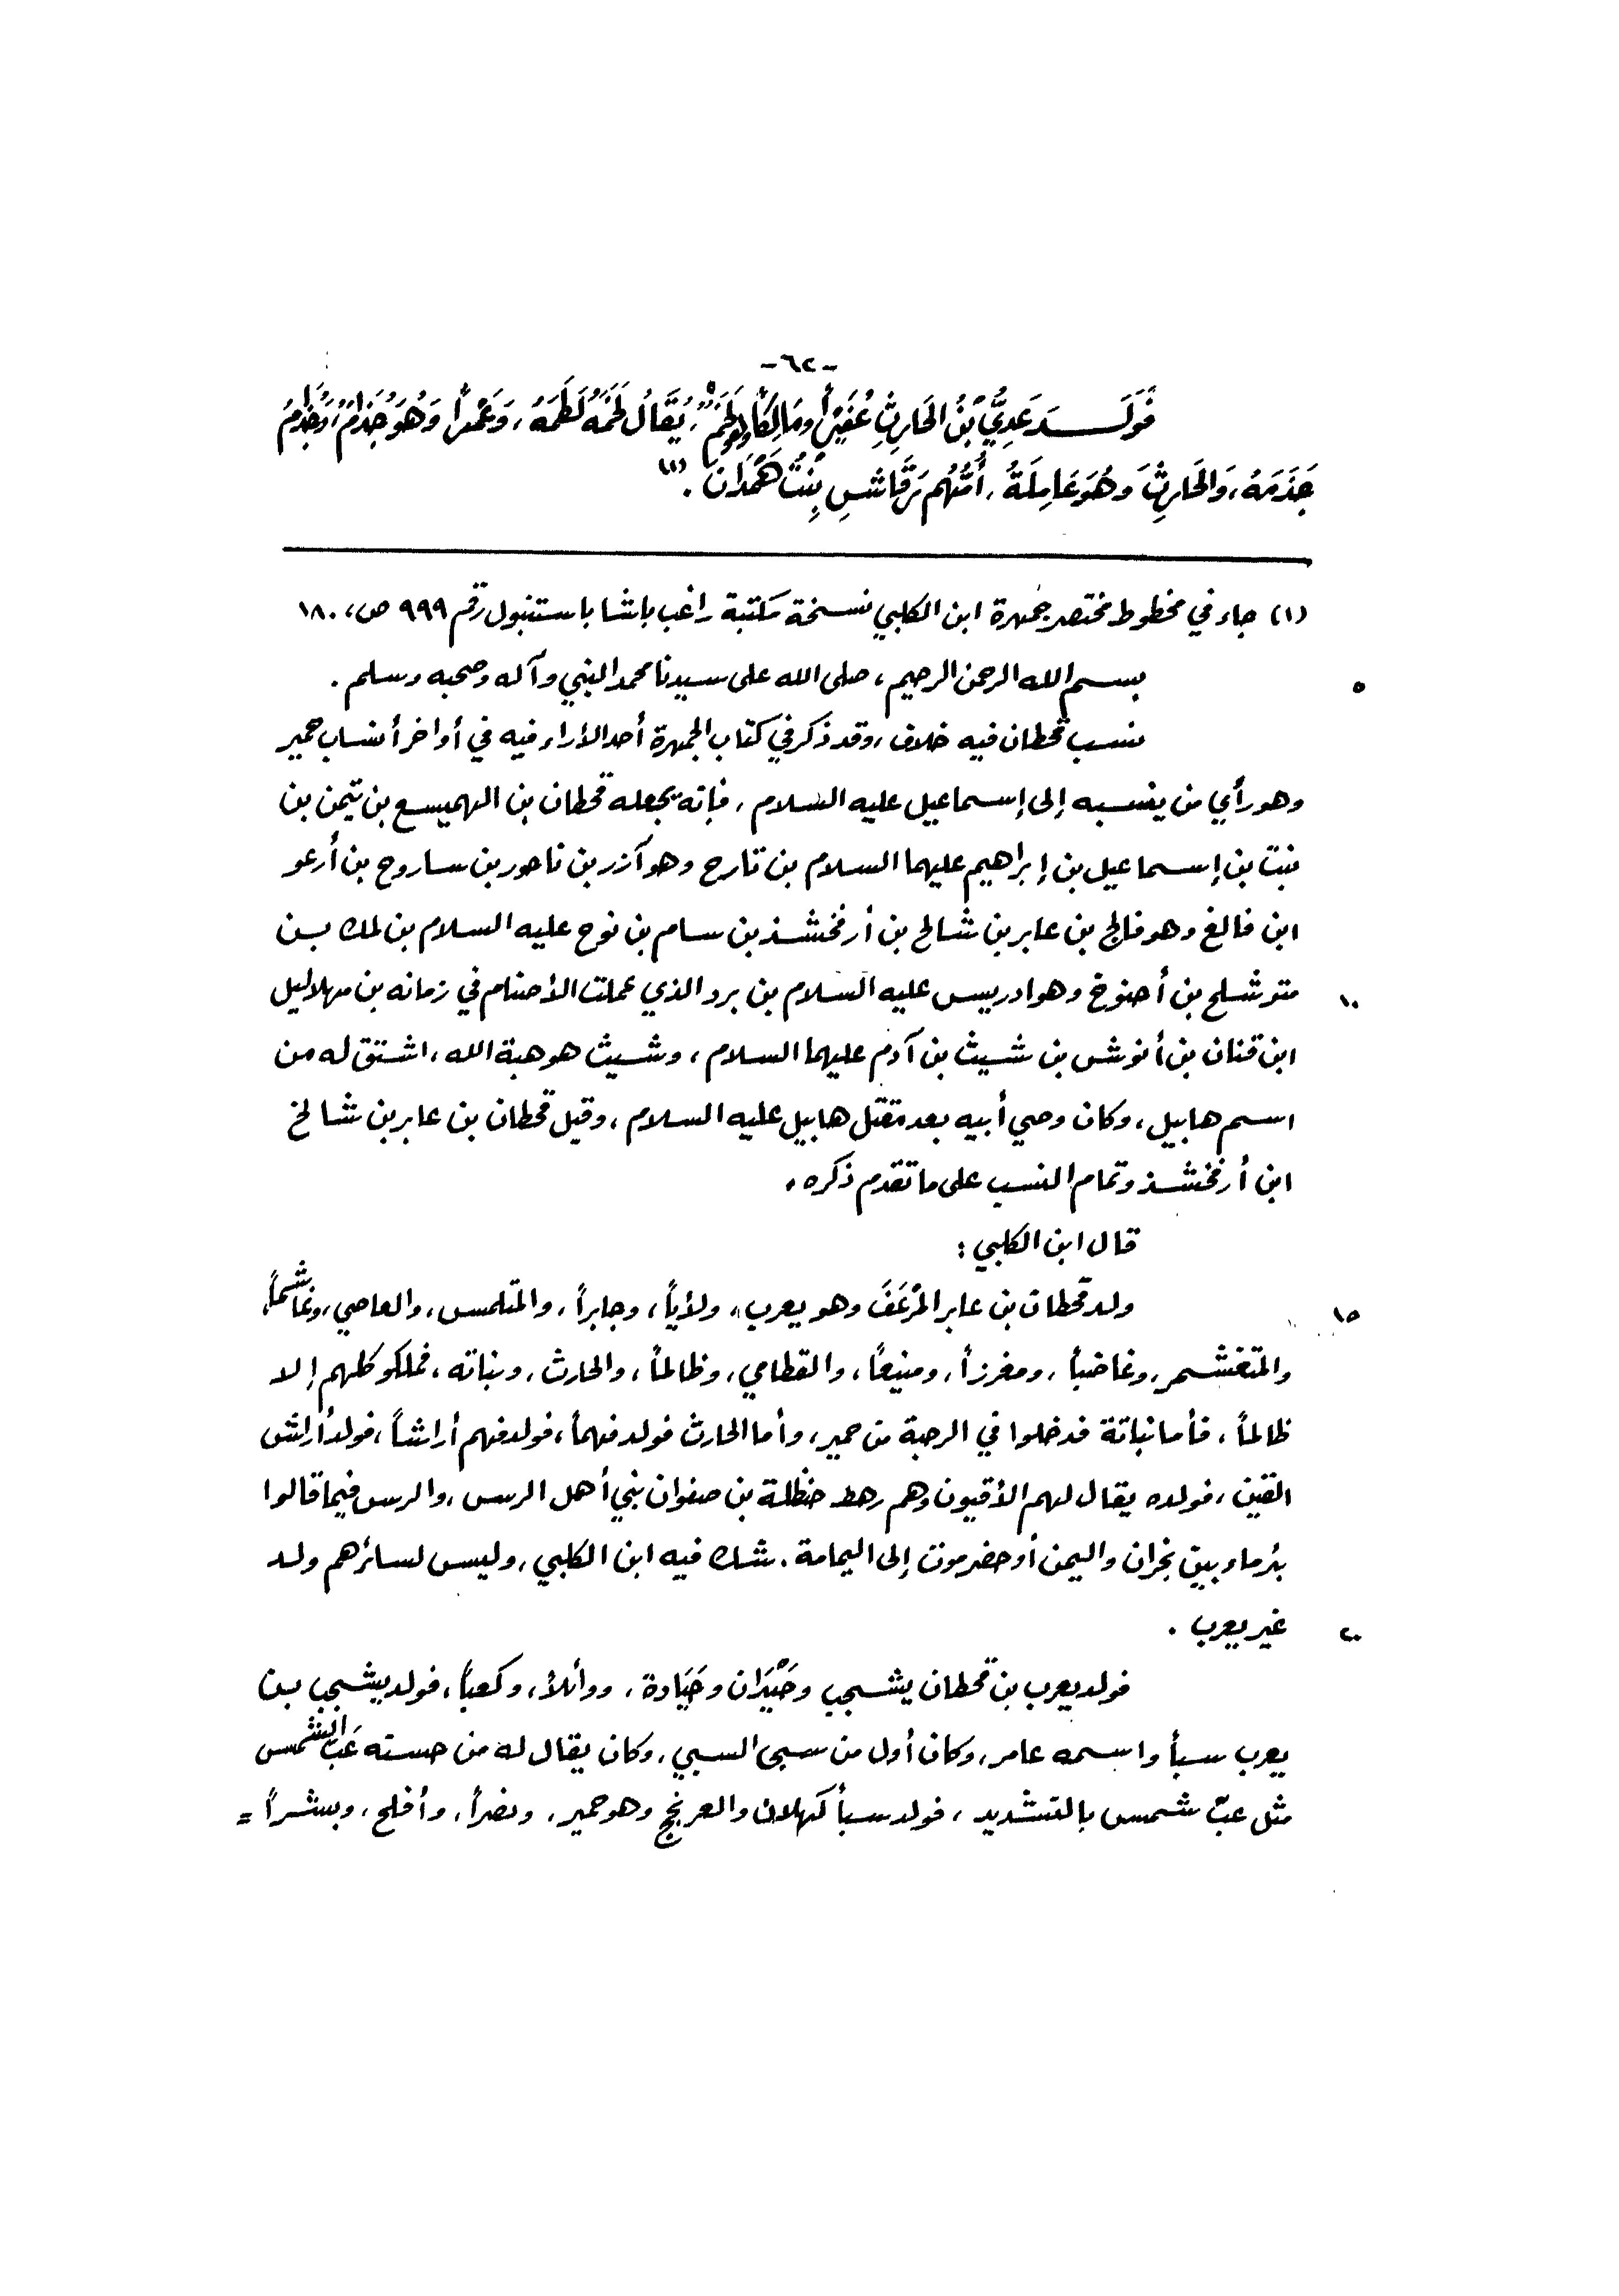 -٦٢-
فَوَلَـــدَ عَدِيُّ بْنُ الحَارِثِ عُفَيْراً وَمَالِكَاً وَهُوَ لَخْمٌ، يُقَالُ لَخَمَهُ لَطَمَهُ، وَعَمْراً وَهُوَ جُذَامُ، وَجُذِمَ
جَذَمَهُ، وَالحَارِثَ وَهُوَ عَامِلَةُ، أُمُّهُم رَقَاشِ بِنْتُ هَمْدَانَ.(١)
(١) جاء في مخطوط مختصر جمهرة ابن الكلبي نسخة مكتبة راغب باشا باستنبول رقم ٩٩٩ ص، ١٨٠
بسم الله الرحمن الرحيم، صلى الله على سيدنا محمد النبي وآله وصحبه وسلم.
٥
نسب قحطان فيه خلاف، وقد ذكر في كتاب الجمهرة أحد الأراء فيه في أواخر أنساب حمير
وهو رأي من ينسبه إلى إسماعيل عليه السلام، فإنه يجعله قحطان بن الهميسع بن تيمن بن
نبت بن إسماعيل بن إبراهيم عليهما السلام بن تارح وهو آزر بن ناحور بن ساروح بن أرغو
ابن فالغ وهو فالج بن عابر بن شالخ بن أرفخشذ بن سام بن نوح عليه السلام بن لمك بــن
متوشلح بن أحنوخ وهو ادريس عليه السلام بن يرد الذي عملت الأصنام في زمانه بن مهلاليل
١٠
ابن قنان بن أنوش بن شيث بن آدم عليهما السلام، وشيث هو هبة الله، اشتق له من
اسم هابيل، وكان وصي أبيه بعد مقتل هابيل عليه السلام، وقيل قحطان بن عابر بن شالخ
ابن أرفخشذ وتمام النسب على ما تقدم ذكره.
قال ابن الكلبي:
ولد قحطان بن عابر المُرْعَفَ وهو يعرب، ولأياً، وجابراً، والمتلمس، والعاصي، وغاشماً،
١٥
والمتغشمر، وغاضباً، ومغرزاً، ومنيعاً، والقطامي، وظالماً، والحارث، ونباته، فملكو كلهم إلا
ظالماً، فأما نباتة فدخلوا في الرحبة من حمير، وأما الحارث فولد فهماً، فولد فهم أراشاً، فولد أراش
القين، فولده يقال لهم الأقيون وهم رهط حنظلة بن صفوان نبي أهل الرس، والرس فيما قالوا
بئر ماء بين نجران واليمن أو حضرموت إلى اليمامة. شك فيه ابن الكلبي، وليس لسائرهم ولد
غير يعرب.
٢٠
فولد يعرب بن قحطان يشجب وحَيْدَان وحَيَادة، ووائلاً، وكعباً، فولد يشجب بــن
يعرب سبأ واسمه عامر، وكان أول من سبى السبي، وكان يقال له من حسنه عَبَ الشمس
مثل عبّ شمس بالتشديد، فولد سبأ كهلان والعرنجج وهو حمير، ونصراً، وأفلح، وبشراً =